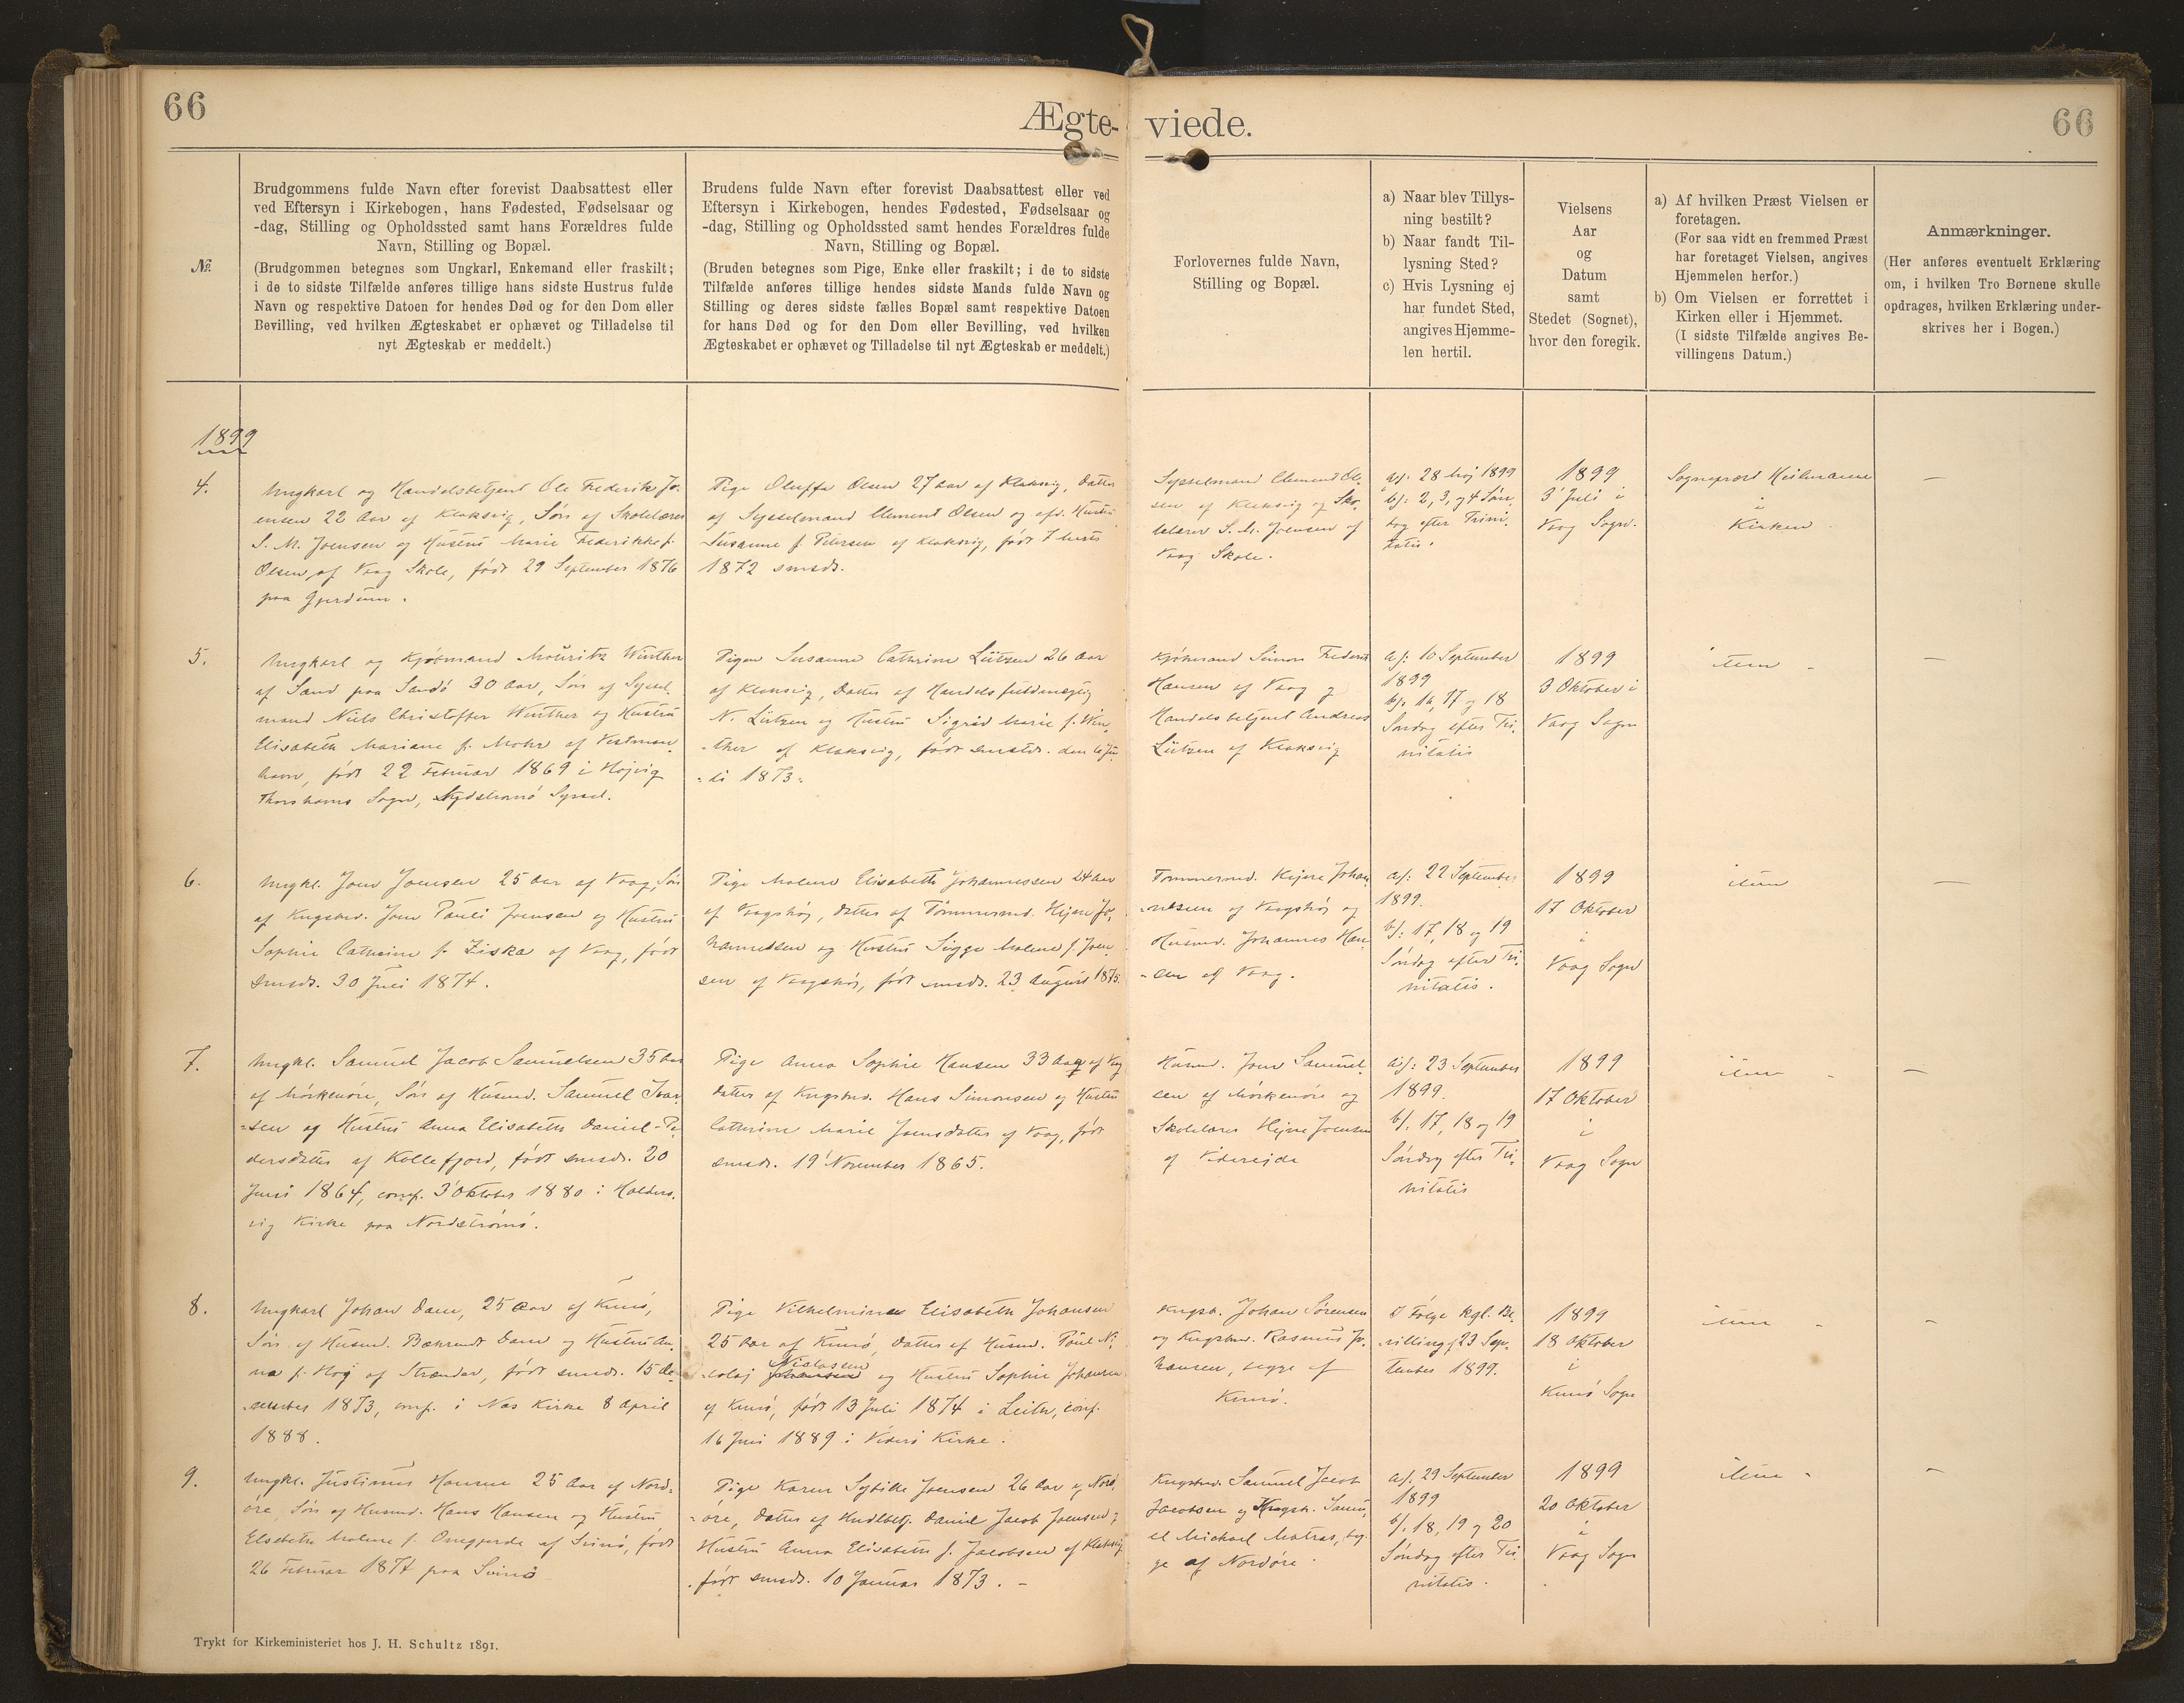 66
Ægte-
viede.
66
No.
Brudgommens fulde Navn efter forevist Daabsattest eller
ved Eftersyn i Kirkebogen, hans Fødested, Fødselsaar og
-dag, Stilling og Opholdssted samt hans Forældres fulde
Navn, Stilling og Bopæl.
(Brudgommen betegnes som Ungkarl, Enkemand eller fraskilt;
i de to sidste Tilfælde anføres tillige hans sidste Hustrus fulde
Navn og respektive Datoen for hendes Død og for den Dom eller
Bevilling, ved hvilken Ægteskabet er ophævet og Tilladelse til
nyt Ægteskab er meddelt.)
Brudens fulde Navn efter forevist Daabsattest eller ved
Eftersyn i Kirkebogen, hendes Fødested, Fødselsaar og
-dag, Stilling og Opholdssted samt hendes Forældres fulde
Navn, Stilling og Bopæl.
(Bruden betegnes som Pige, Enke eller fraskilt; i de to sidste
Tilfælde anføres tillige hendes sidste Mands fulde Navn og
Stilling og deres sidste fælles Bopæl samt respektive Datoen
for hans Død og for den Dom eller Bevilling, ved hvilken
Ægteskabet er ophævet og Tilladelse til nyt Ægteskab er meddelt.)
Forlovernes fulde Navn,
Stilling og Bopæl.
a) Naar blev Tillys-
ning bestilt?
b) Naar fandt Til-
lysning Sted?
c) Hvis Lysning ej
har fundet Sted,
angives Hjemme-
len hertil.
Vielsens
Aar
og
Datum
samt
Stedet (Sognet),
hvor den foregik.
a) Af hvilken Præst Vielsen er
foretagen.
(For saa vidt en fremmed Præst
har foretaget Vielsen, angives
Hjemmelen herfor.)
b) Om Vielsen er forrettet i
Kirken eller i Hjemmet.
(I sidste Tilfælde angives Be-
villingens Datum.)
Anmærkninger.
(Her anføres eventuelt Erklæring
om, i hvilken Tro Børnene skulle
opdrages, hvilken Erklæring under-
skrives her i Bogen.)
1899
4.
Ungkarl og Handelsbetjent Ole Frederik Jo-
ensen 22 Aar af Klaksvig, Søn af Skolelærer
S. M. Joensen og Hustru Marie Frederikke f.
Olsen, af Vaag Skole, født 29 September 1876
paa Gjerdum.
Pige Oluffa Olsen 27 Aar af Klaksvig, Datter
af Sysselmand Clement Olsen og afd. Hustru
Susanne f. Petersen af Klaksvig, født 7 Marts
1872 smsds.
Sysselmand Clement Ol-
sen af Klaksvig og Sko-
lelærer S. M. Joensen af
Vaag Skole.
a): 28 Maj 1899
b): 2, 3, og 4 Søn-
dag efter Trini-
tatis.
1899
3' Juli i
Vaag Sogn.
Sognepræst Heilmann
i
Kirken
—
5.
Ungkarl og Kjøbmand Mouritz Winther
af Sand paa Sandø 30 Aar, Søn af Syssel-
mand Niels Christoffer Winther og Hustru
Elisabeth Mariane f. Mohr af Vestman-
havn, født 22 Februar 1869 i Højvig
Thorshavns Sogn, Sydstrømø Syssel.
Pigen Susanne Cathrine Lützen 26 Aar
af Klaksvig, Datter af Handelsfuldmægtig
N. Lützen og Hustru Sigrid Marie f. Win-
-ther af Klaksvig, født smstds. den 6 Ju-
-li 1873.
Kjøbmand Simon Frederik
Hansen af Vaag og
Handelsbetjent Andreas
Lützen af Klaksvig
a): 10 September
1899
b): 16, 17 og 18
Søndag efter Tri-
nitatis
1899
3 Oktober i
Vaag Sogn
item -
—
6.
Ungkl. Joen Joensen 25 Aar af Vaag, Søn
af Kngsbnd. Joen Pauli Joensen og Hustru
Sophie Cathrine f. Ziska af Vaag, født
smsds. 30 Juli 1874.
Pige Malene Elisabeth Johannessen 24 Aar
af Vaagshøj, Datter af Tømmermd. Hejne Jo-
hannessen og Hustru Sigge Malene f. Joen-
sen af Vaagshøj, født smsds. 23 August 1875.
Tømmermd. Hejne Johan-
-nesen af Vaagshøj og
Husmd. Johannes Han-
-sen af Vaag.
a): 22 September
1899.
b): 17, 18 og 19
Søndag efter Tri-
nitatis.
1899
17 Oktober
i
Vaag Sogn
item
—
7.
Ungkl. Samuel Jacob Samuelsen 35 Aar
af Mørkenøre, Søn af Husmd. Samuel Ivar-
-sen og Hustru Anna Elisabeth Daniel-Pe-
dersdatter af Kollefjord, født smsds. 20
Juni 1864, conf. 3' Oktober 1880 i Halders-
vig Kirke paa Nordstrømø.
Pige Anna Sophie Hansen 33 Aar af Vaag
Datter af Kngsbnd. Hans Simonsen og Hustru
Cathrine Marie Joensdatter af Vaag, født
smsds. 19 November 1865.
Husmd. Joen Samuel-
sen af Mørkenøre og
Skolelærer Hejne Joensen
af Viderejde
a): 23 September
1899.
b). 17, 18 og 19
Søndag efter Tri-
nitatis
1899
17 Oktober
i
Vaag Sogn
item -
—
8.
Ungkarl Johan Dam, 25 Aar af Kunø,
Søn af Husmd. Bæhrendt Dam og Hustru An-
na f. Høj af Strænder, født smsds. 15 De-
-cember 1873, conf. i Næs Kirke 8 April
1888.
Pige Vilhelmine Elisabeth Johansen
25 Aar af Kunø, Datter af Husmd. Poul Ni-
Niclassen
-colaj Johansen og Hustru Sophie Johansen
af Kunø, født 13 Juli 1874 i Leith, conf.
16 Juni 1889 i Viderø Kirke.
Kngsb. Johan Sørensen
og Kngsbnd. Rasmus Jo-
hansen, begge af
Kunø.
I Følge kgl. Be-
villing f 23 Sep-
tember 1899.
1899
18 Oktober
i
Kunø Sogn
item -
—
9.
Ungkl. Justinus Hansen 25 Aar af Nord-
øre, Søn af Husmd. Hans Hansen og Hustru
Elsebeth Malene f. Omgjerde af Svinø, født
26 Februar 1874 paa Svinø
Pige Karen Sybille Joensen 26 Aar af Nord-
-øre, Datter af Hndlbetj. Daniel Jacob Joensen og
Hustru Anna Elisabeth f. Jacobsen af Klaksvig
født smsds. 10 Januar 1873. -
Kngsbnd. Samuel Jacob
Jacobsen og Kngsb. Samu-
el Michael Matras, beg-
ge af Nordøre
a): 29 September
1899
b). 18, 19 og 20
Søndag efter Tri-
nitatis.
1899
20 Oktober
i
Vaag Sogn
item -
—
Trykt for Kirkeministeriet hos J. H. Schultz 1891.